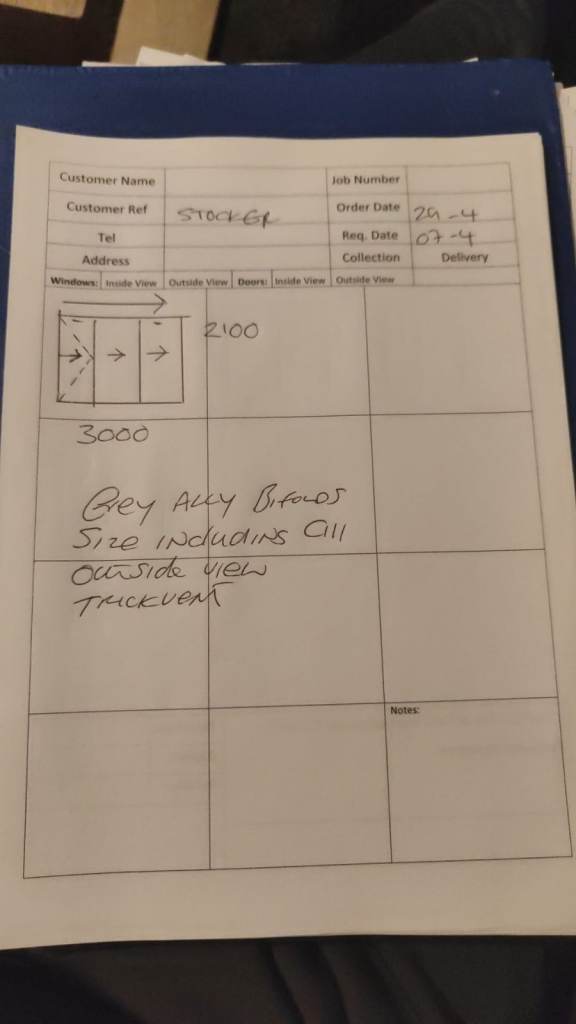 Customer Name Job Number
Customer Ref STOCKER Order Date 29-4
Tel Req. Date 07-4
Address Collection Delivery
Windows: Inside View Outside View Doors: Inside View Outside View
2100
3000
Grey Ally Bifolds
Size including Cill
outside view
Trickvent
Notes: